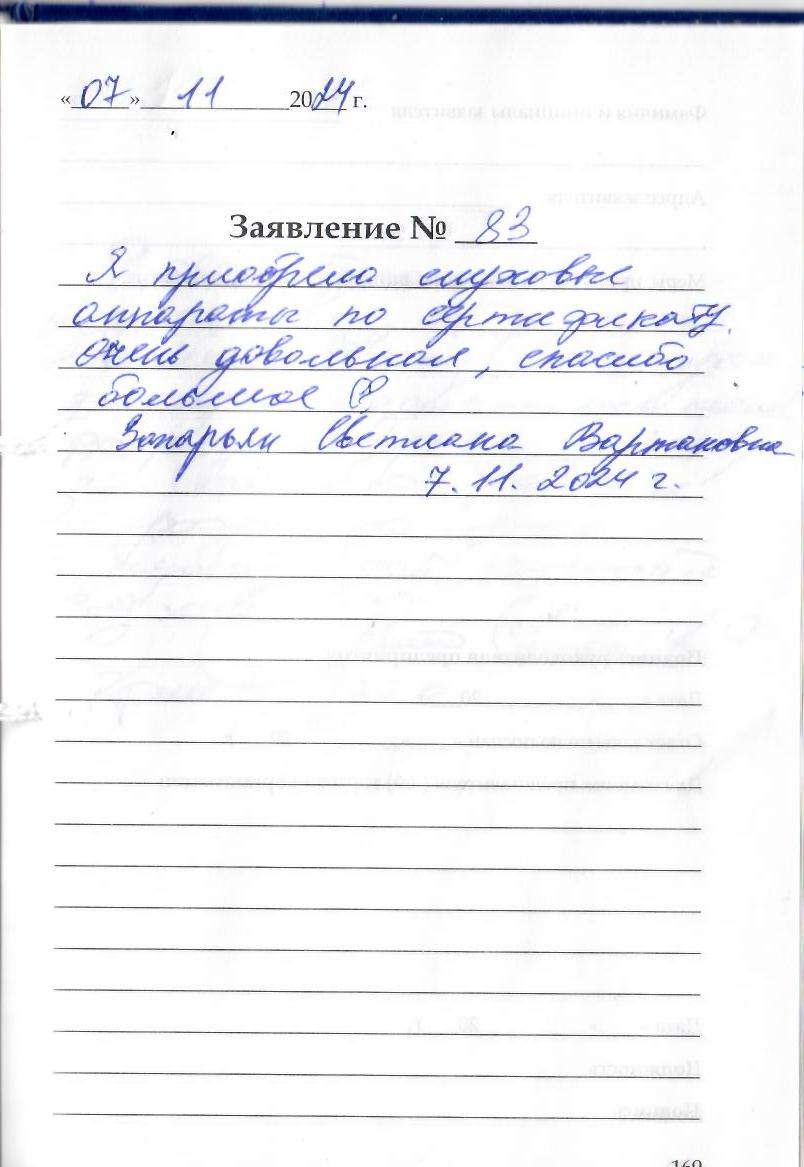 «07» 11 2024 г.
Заявление № 83
Я приобрела слуховые
аппараты по сертификату.
Очень довольная, спасибо
большое
Захарьян Светлана Вартановна
7.11.2024 г.
169